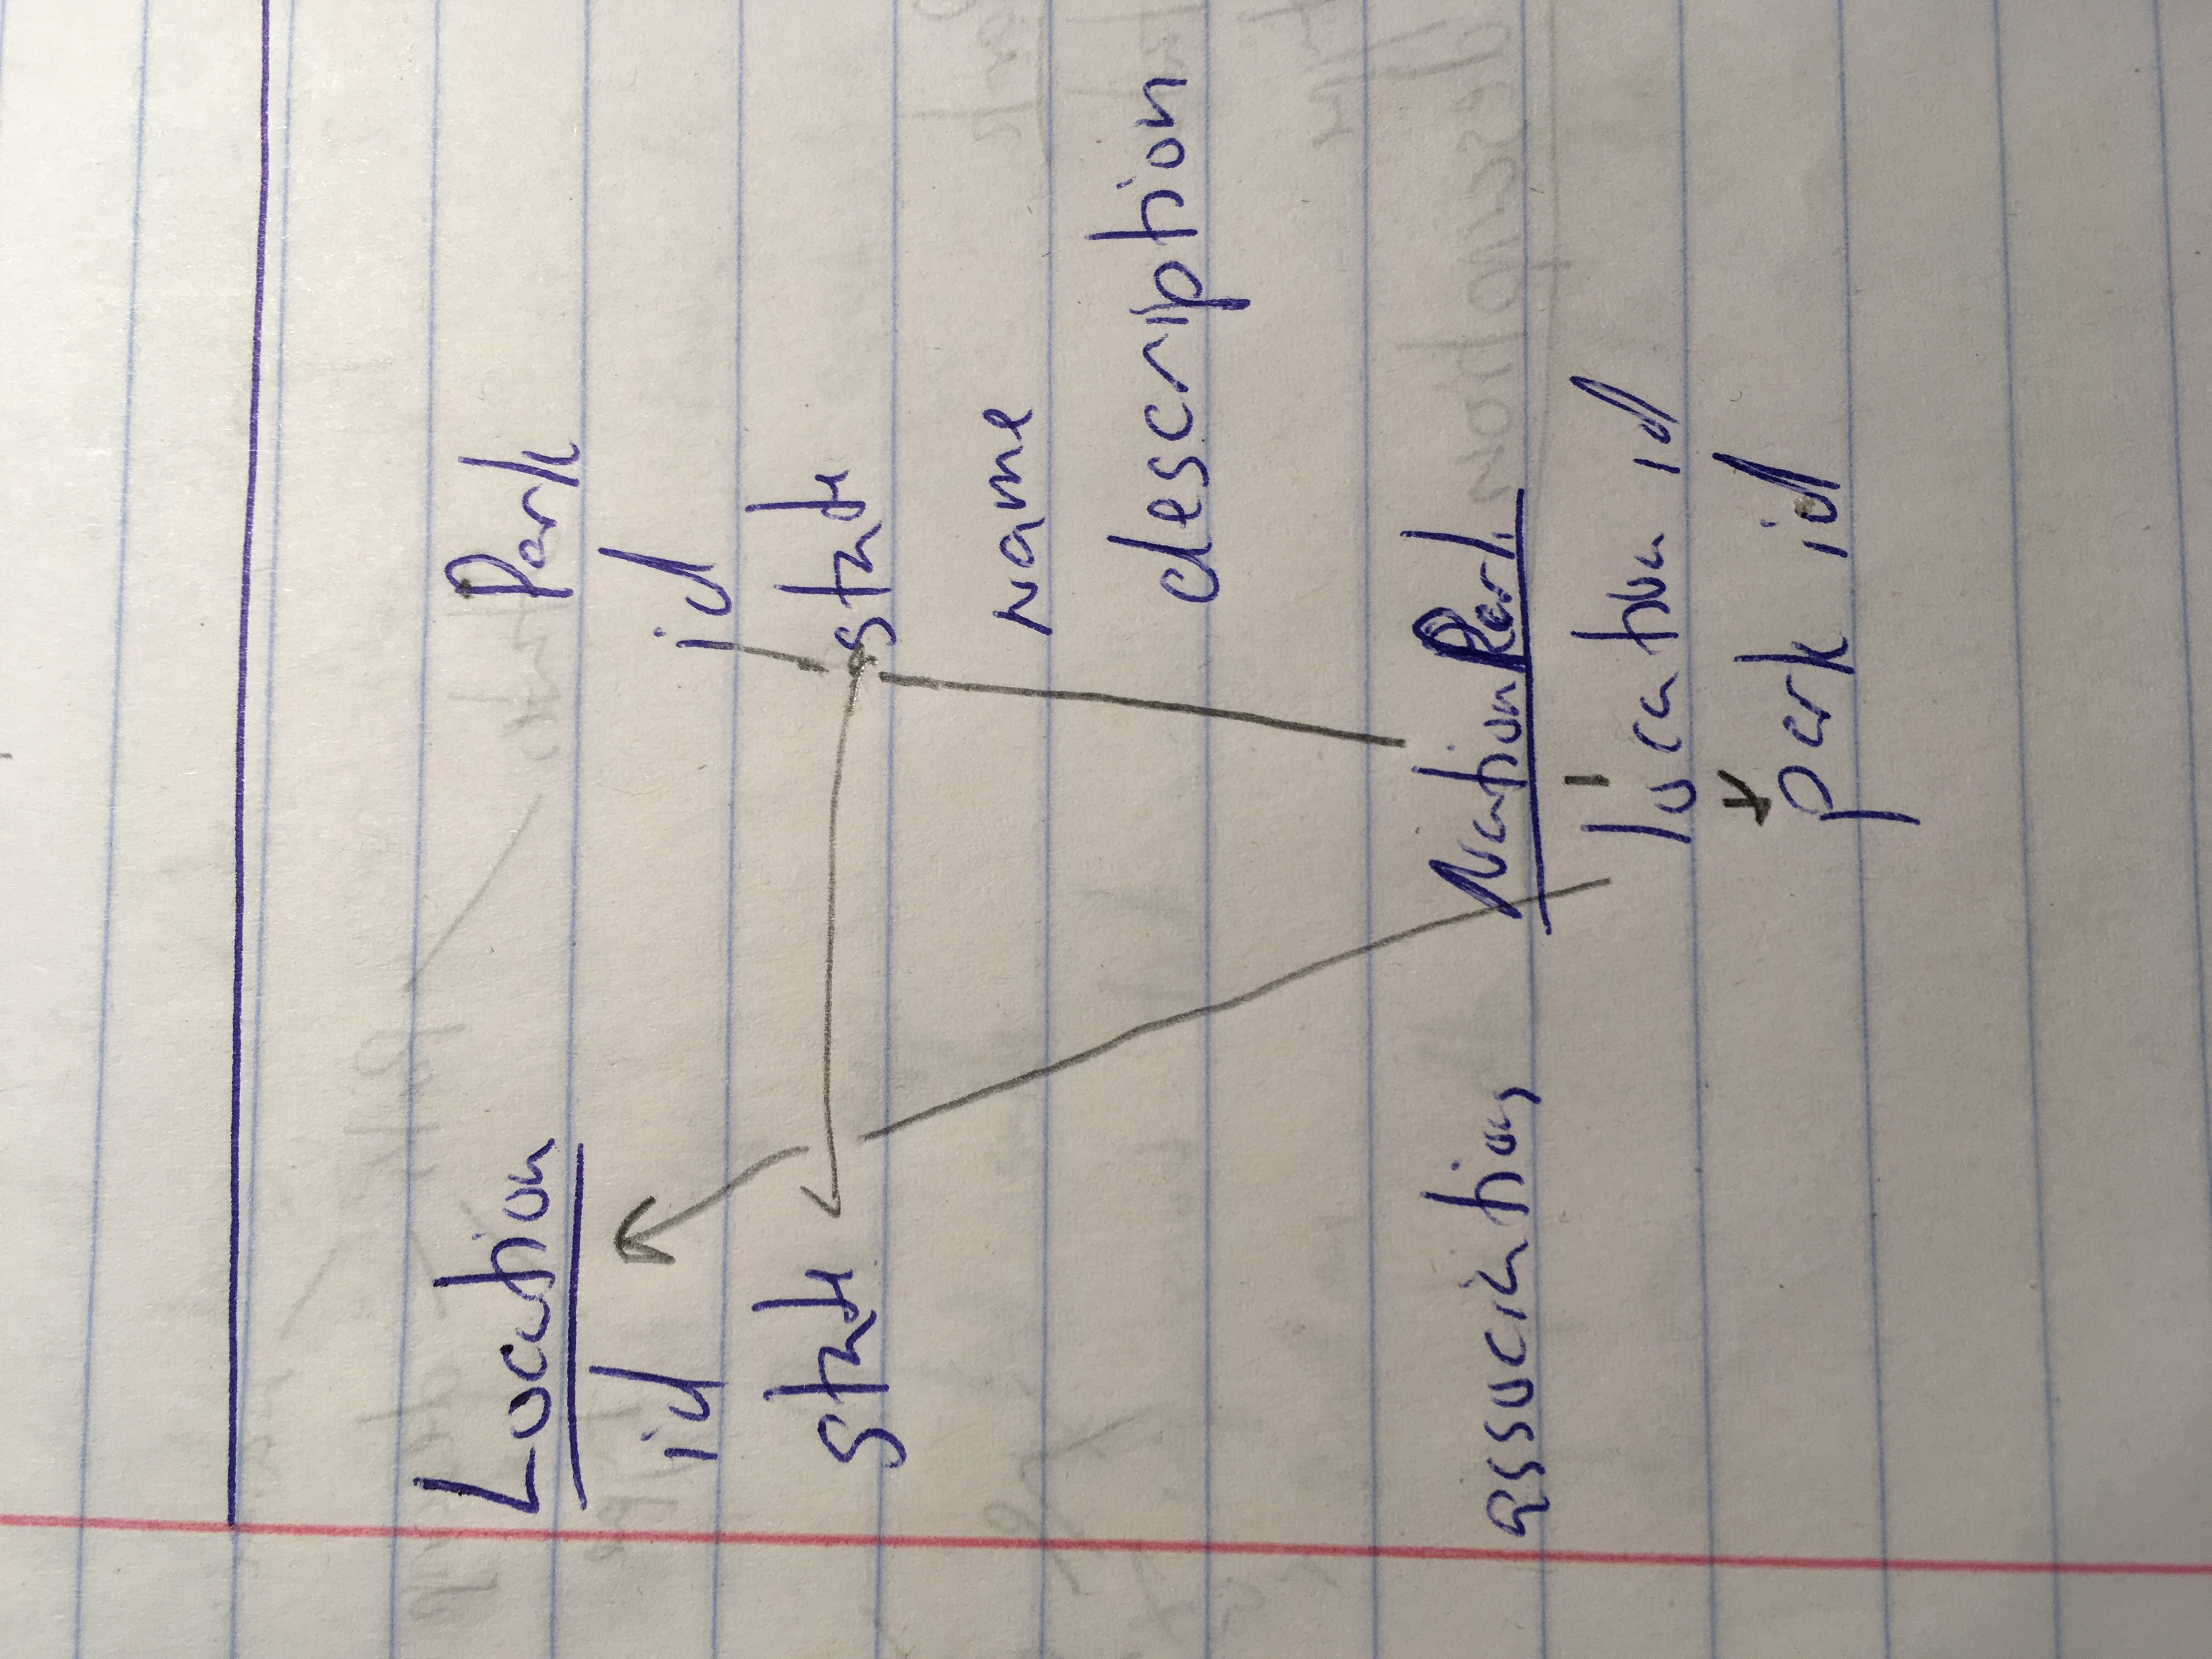 Location
id
state
Park
id
state
name
description
associations
NationPark
location id
park id